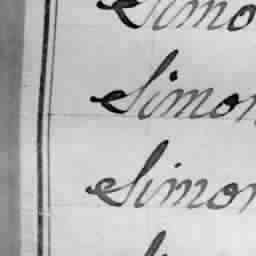 Simo
Simon
Simon